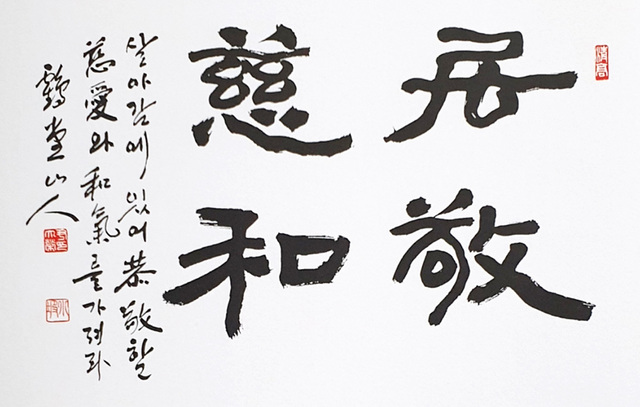 居敬
慈和
살아감에 있어 恭敬할
慈愛와 和氣를 가져라
堂山人